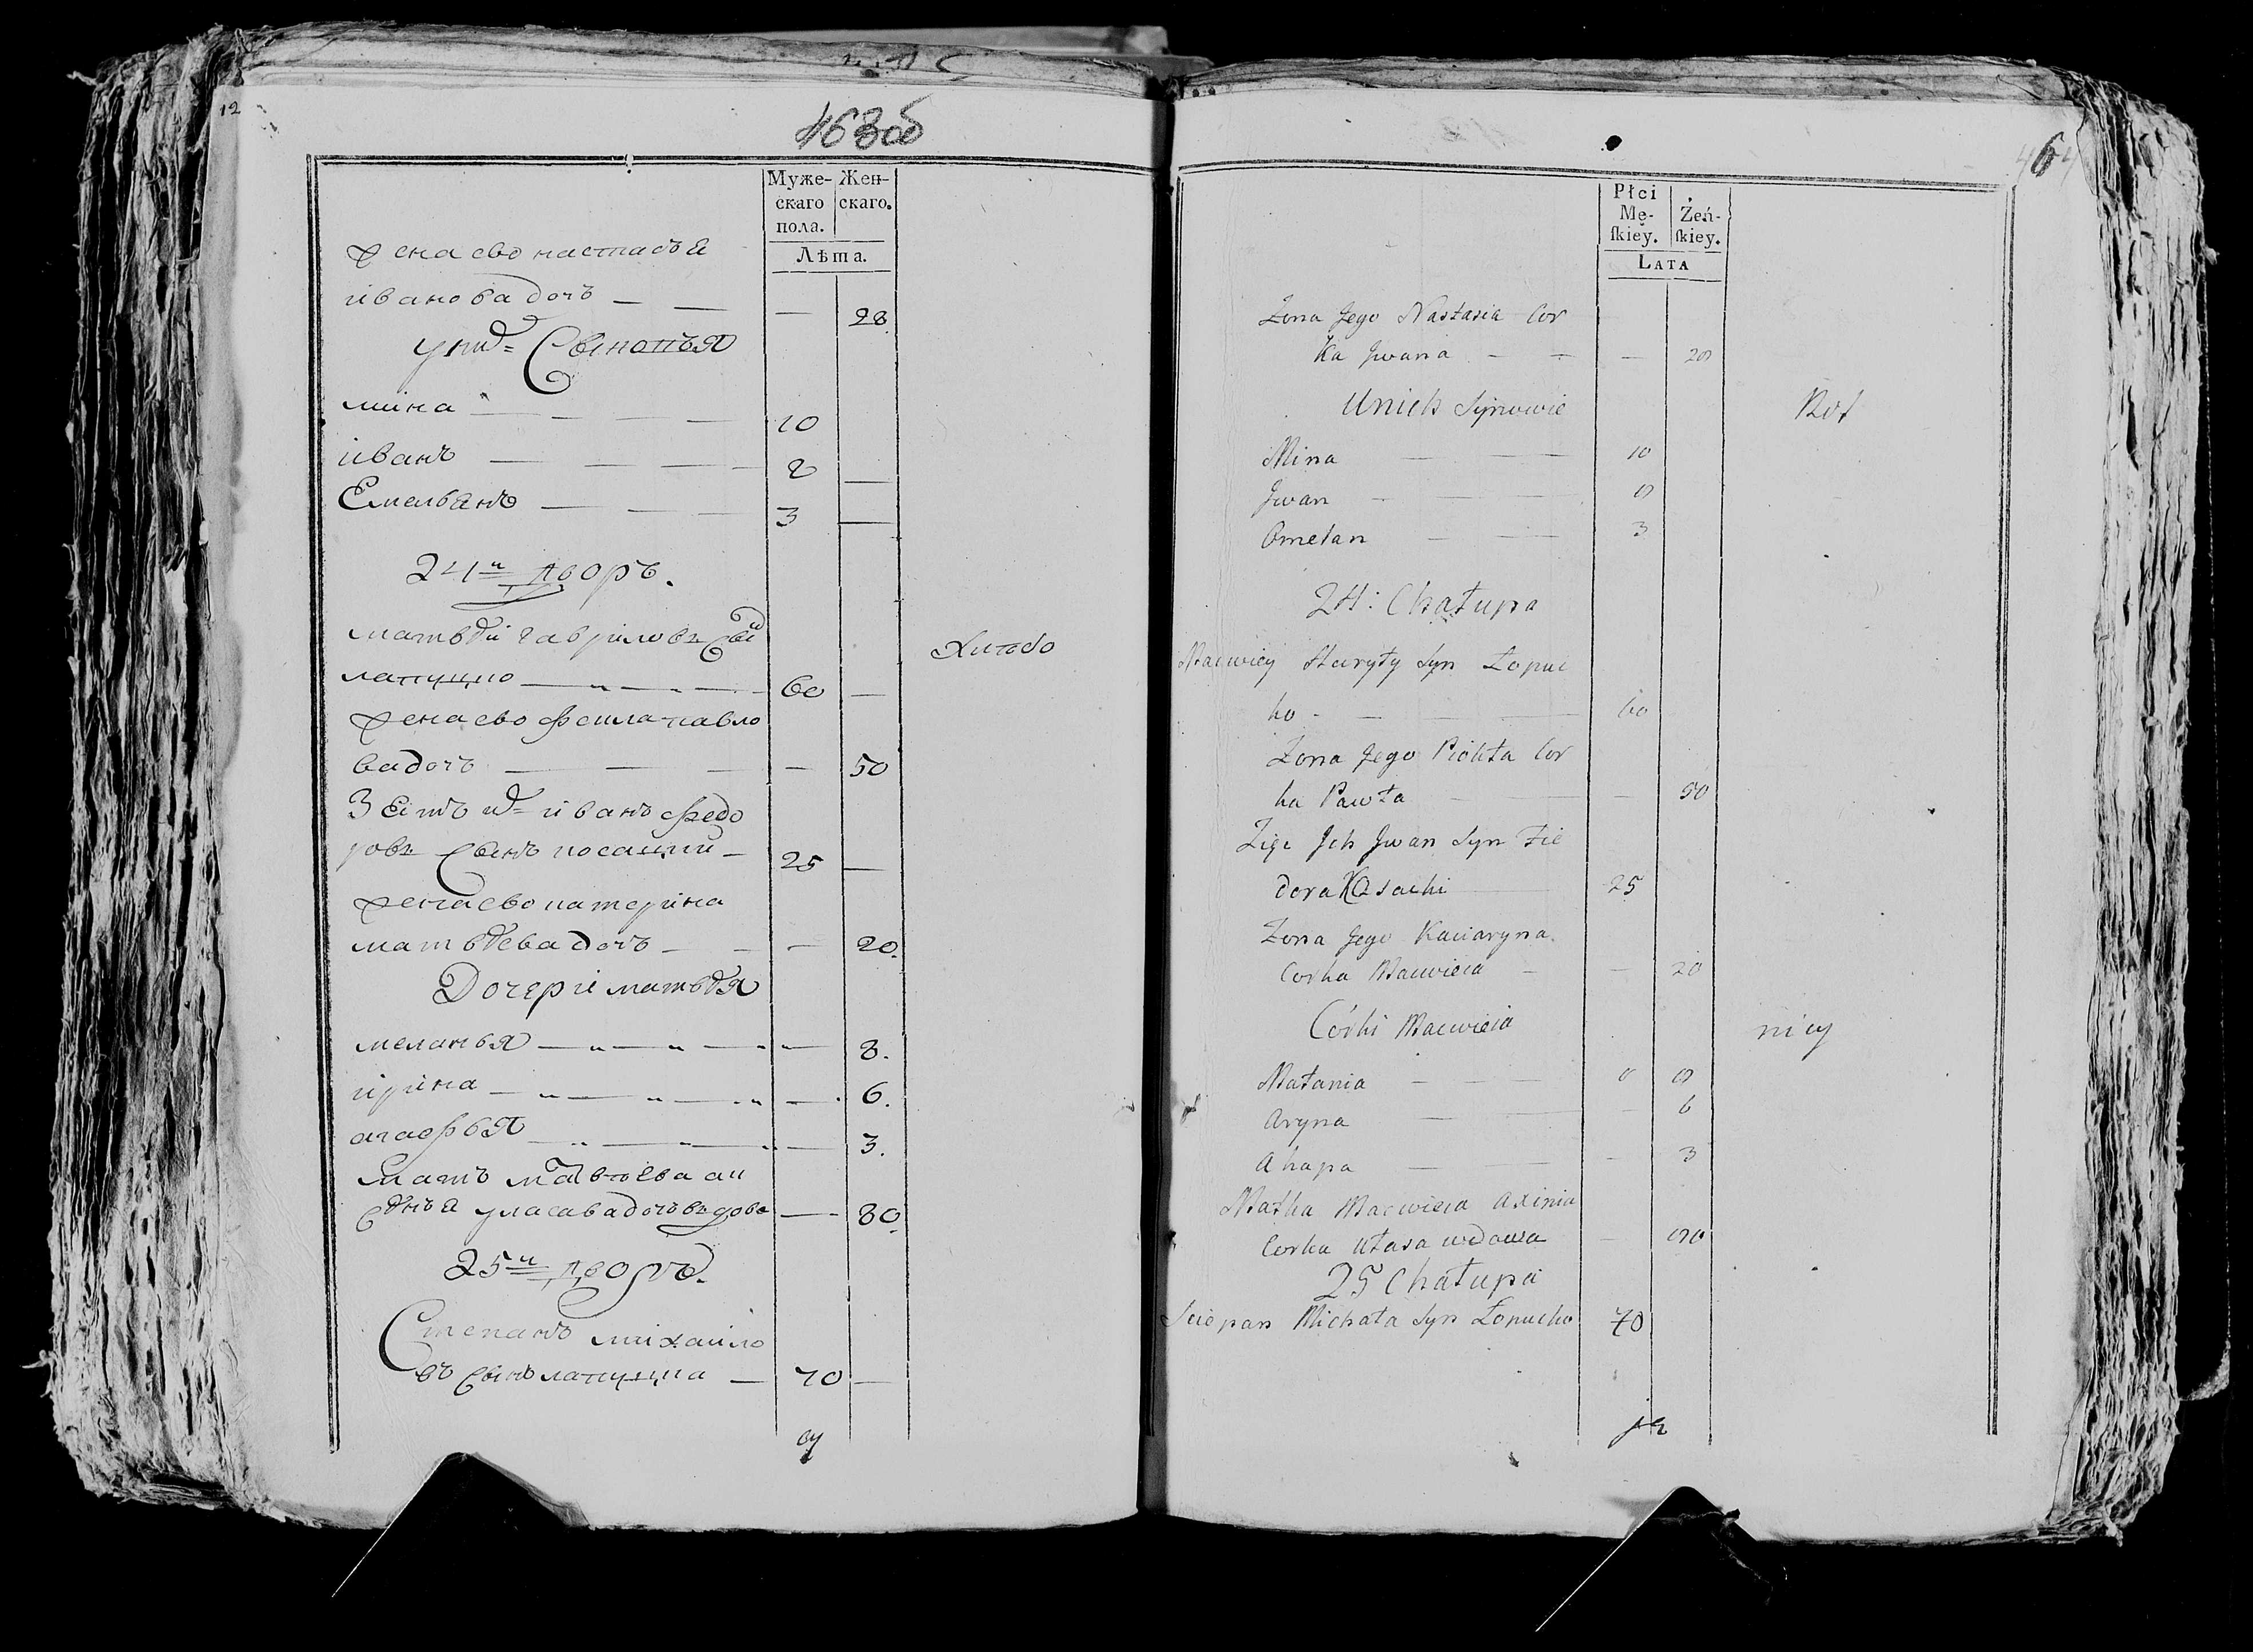 12
463об
Муже- Жен-
скаго скаго.
пола.
Лѣта.
жена ево настасья
иванова дочь — — — 28.
у нихъ Сыновья
мина — — — 10
иванъ — — — 8 —
Емельянъ — — — 3 —
24й дворъ.
матвѣй гавриловъ Сынъ
лапуцко — — — 60 —
жена ево фекла павло
ва дочь — — — — 50
Зеть ихъ иванъ федо
ровъ Сынъ косацкий — 25 —
жена ево катерина
матвѣева дочь — — — 20.
Дочери матвѣя
меланья — — — — 8.
ирина — — — — 6.
агафья — — — — 3.
Мать матвѣева ак
синья уласава дочь вдова — 80.
25й дворъ.
Степанъ михайло
въ Сынъ лапуцка — 70 —
464
Płci
Mę- Żeń-
skiey. skiey.
LATA
Żona Jego Nastasia Cor
ka Jwana — — — 28
Unich Synowie
Mina — — — 10
Jwan — — — 8
Omelan — — 3
24: Chałupa
Maciwiey Hawryły Syn Łopuc
ko — — — 60
Żona Jego Piokła Cor
ka Pawła — — — 50
Zięć Jch Jwan Syn Fie
dora Kasacki — 25
Żona Jego Kaciaryna
Corka Maciwieia — — 20
Córki Maciwieia
Małania — — — 8
Aryna — — 6
Ahapa — — — 3
Matka Maciwieia Axinia
Corka Ułasa wdowa — 80
25 Chałupa
Sciepan Michała Syn Łopucko 70